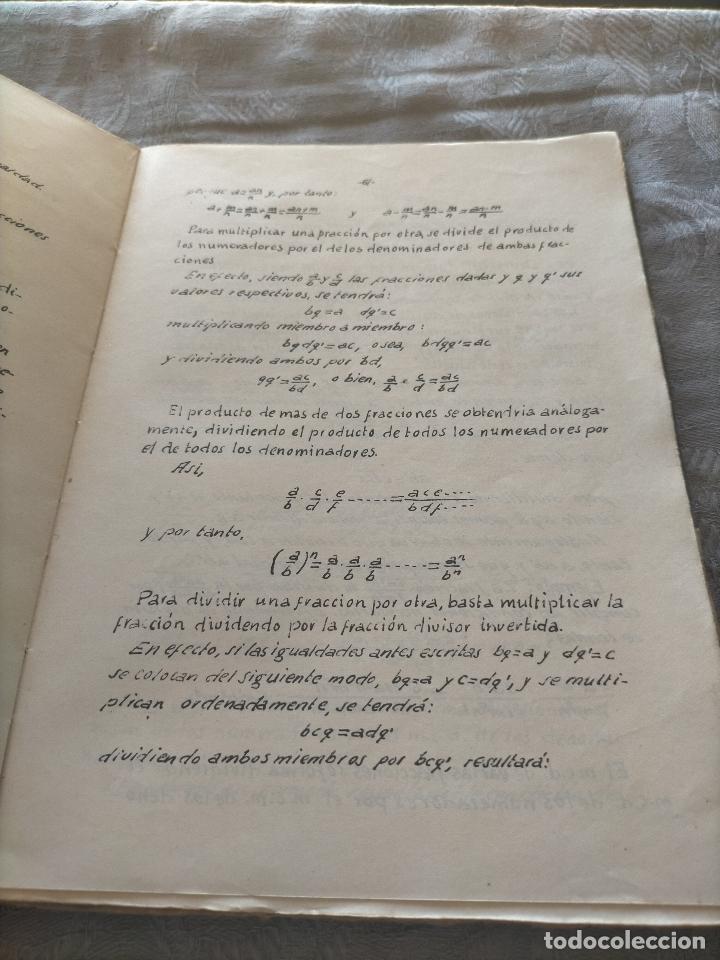 ardad.
cciones
di-
o-
en
e
s-
-61-
a=an/n y, por tanto:
a+m/n=an/n+m/n=an+m/n y a-m/n=an/n-m/n=an-m/n
Para multiplicar una fracción por otra, se divide el producto de
los numeradores por el de los denominadores de ambas frac-
ciones
En efecto, siendo a/b y c/d las fracciones dadas y q y q' sus
valores respectivos, se tendrá:
bq=a dq'=c
multiplicando miembro a miembro:
bqdq'=ac, o sea, bdqq'=ac
y dividiendo ambos por bd,
qq'=ac/bd, o bien, a/b × c/d=ac/bd
El producto de mas de dos fracciones se obtendria análoga-
mente, dividiendo el producto de todos los numeradores por
el de todos los denominadores.
Asi,
a/b · c/d · e/f ------=ace----/bdf----
y por tanto,
(a/b)ⁿ=a/b · a/b · a/b -----=aⁿ/bⁿ
Para dividir una fraccion por otra, basta multiplicar la
fracción dividendo por la fracción divisor invertida.
En efecto, si las igualdades antes escritas bq=a y dq'=c
se colocan del siguiente modo, bq=a y c=dq', y se multi-
plican ordenadamente, se tendrá:
bcq=adq'
dividiendo ambos miembros por bcq', resultará:
todocoleccion